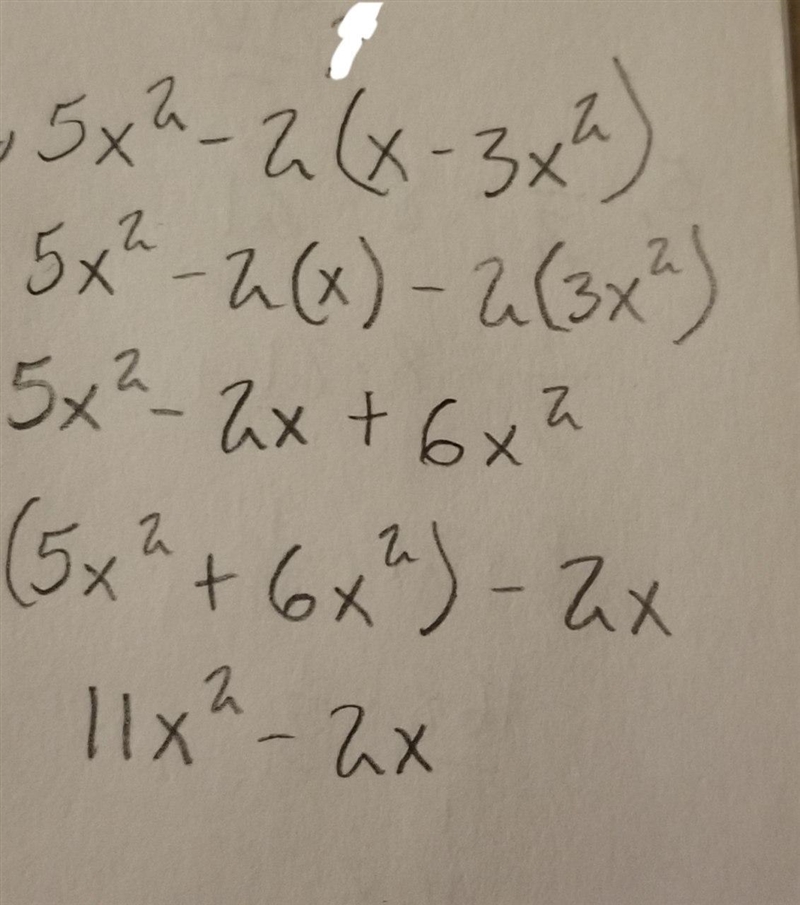 5x² - 2(x - 3x²)
5x² - 2(x) - 2(3x²)
5x² - 2x + 6x²
(5x² + 6x²) - 2x
11x² - 2x